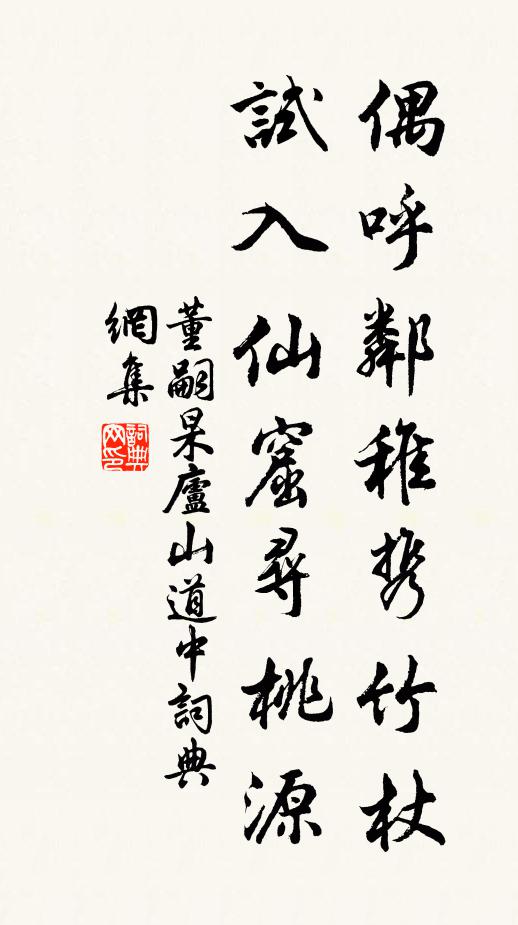 偶呼鄰稚携竹杖
試入仙窟尋桃源
董嗣杲廬山道中詞典
網集
詞典
网印